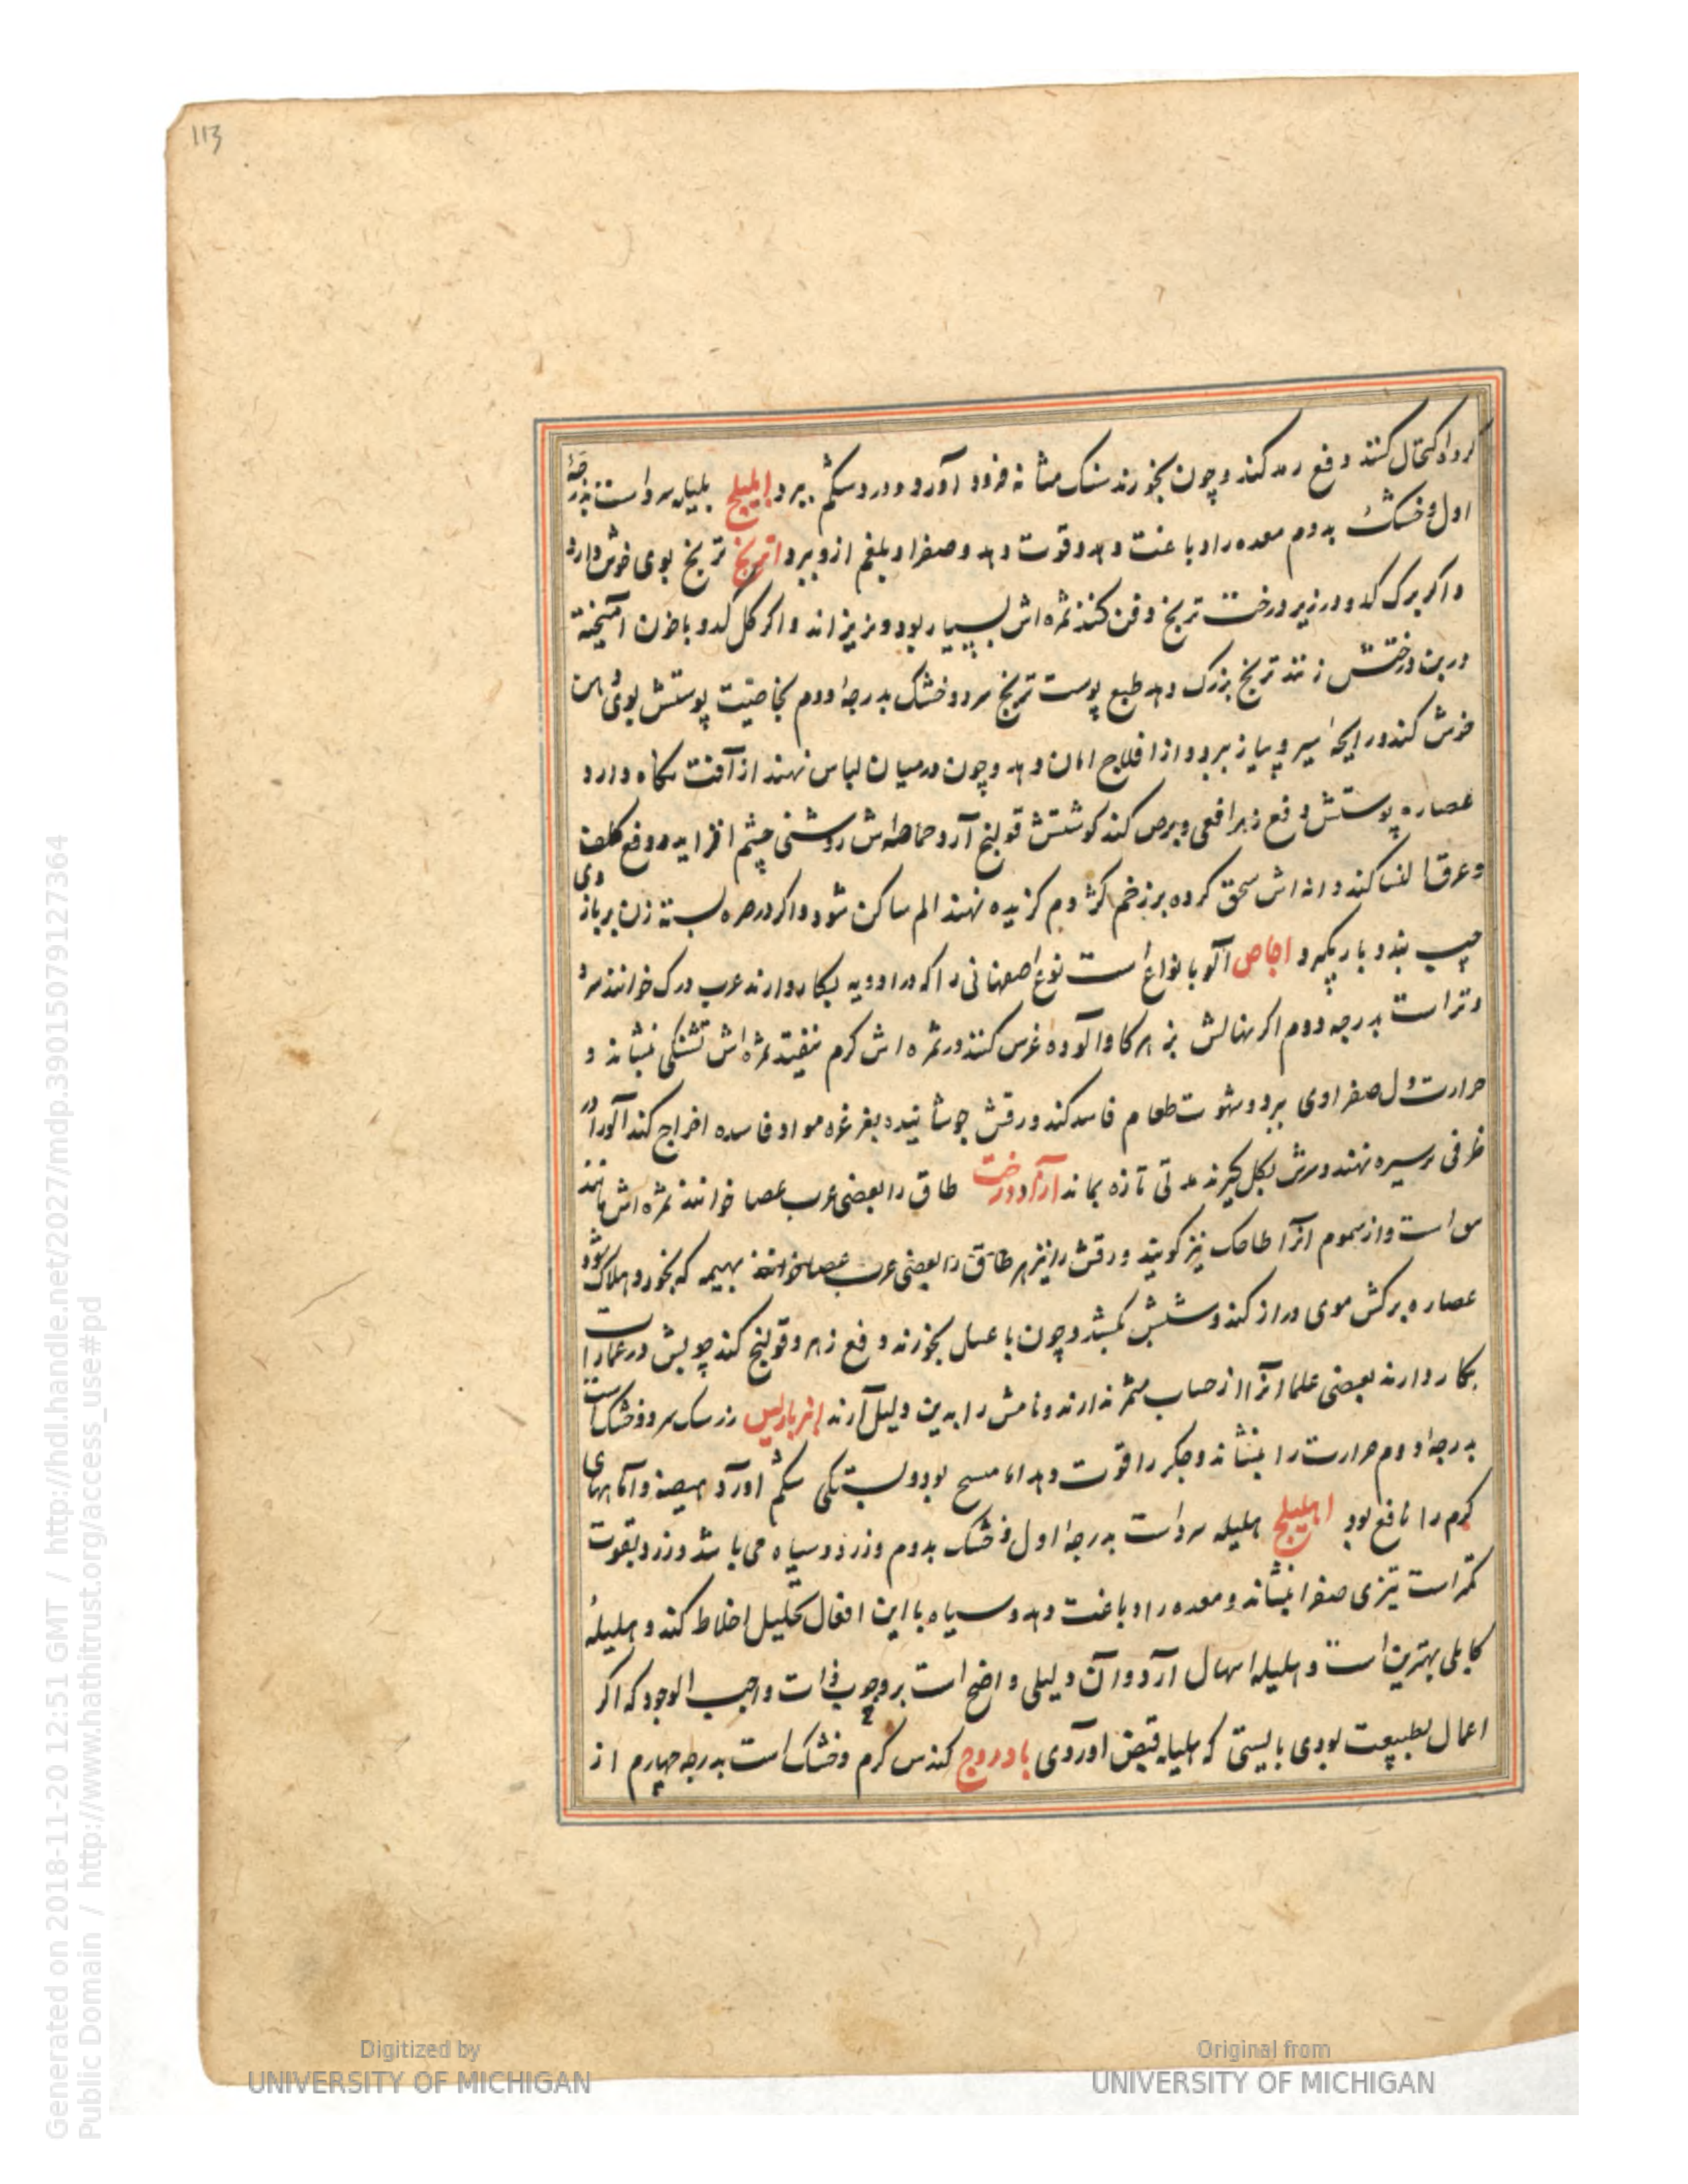 113
کرد اکتحال کنند دفع رمد کند و چون بخورند سنک مثانه فرود آورد و درد شکم ببرد املیلج بلیله سرد است بدرجهٔ
اول و خشک بدوم معده را دباغت دهد و قوت دهد و صفرا و بلغم ازو ببرد اترنج ترنج بوی خوش دارد
و اکر برک کدو در زیر درخت ترنج دفن کنند ثمره اش بسیار بود و نریزاند و اکر کل کدو با خون آمیخته
در بن درختش نهند ترنج بزرک دهد طبع پوست ترنج سرد و خشک بدرجهٔ دوم بخاصیت پوستش بوی دهن
خوش کند و رایحهٔ سیر و پیاز ببرد و از افلاج امان دهد و چون در میان لباس نهند از آفت نکاه دارد
عصاره پوستش دفع زهر افعی و برص کند کوشتش قولنج آرد حماضه اش روشنی چشم افزاید و دفع کلف
و عرق النسا کند دانه اش سحق کرده بر زخم کژدم کزیده نهند الم ساکن شود و اکر در صره بسته زن بر بازوی
چپ بندد بار نکیرد اجاص آلو بانواع است نوع اصفهانی را که در ادویه بکار دارند عرب درک خوانند سرد
و تر است بدرجه دوم اکر نهالش بزهر کاو آلوده غرس کنند در ثمره اش کرم نیفتد ثمره اش تشنکی نشاند و
حرارت دل صفراوی ببرد و شهوت طعام فاسد کند ورقش جوشانیده بغرغره مواد فاسده اخراج کند آلو را در
ظرفی سرسره نهند و سرش بکل کیرند مدتی تازه بماند آزاد درخت طاق را بعضی عرب عصا خوانند ثمره اش مانند
است و از سموم آنرا طاحک نیز کویند ورقش را نیز هر طاق را بعضی عرب عصا خوانند بهیمه که بخورد هلاک شود
عصاره برکش موی دراز کند و شپش بکشد و چون با عسل بخورند دفع زهر و قولنج کند چوبش در عمارات
بکار دارند بعضی علما آنرا از حساب مثمر ندارند و نامش را بدین دلیل آرند انبرباریس زرشک سرد و خشک است
بدرجهٔ دوم حرارت را بنشاند و جکر را قوت دهد اما مسح بود و بستکی شکم آورد هیضه و آماسهای
کرم را نافع بود اهلیلج هلیله سرد است بدرجهٔ اول و خشک بدوم و زرد و سیاه می باشد و زرد بقوت
کمتر است تیزی صفرا بنشاند و معده را دباغت دهد و سیاه با این افعال تحلیل اخلاط کند و هلیلهٔ
کابلی بهترین است و هلیله اسهال آرد و آن دلیلی واضح است بر وجوب ذات واجب الوجود که اکر
اعمال بطبیعت بودی بایستی که هلیله قبض آوردی بادروج کندس کرم و خشک است بدرجه چهارم از
Digitized by
UNIVERSITY OF MICHIGAN
Original from
UNIVERSITY OF MICHIGAN
Generated on 2018-11-20 12:51 GMT / http://hdl.handle.net/2027/mdp.39015079127364
Public Domain / http://www.hathitrust.org/access_use#pd